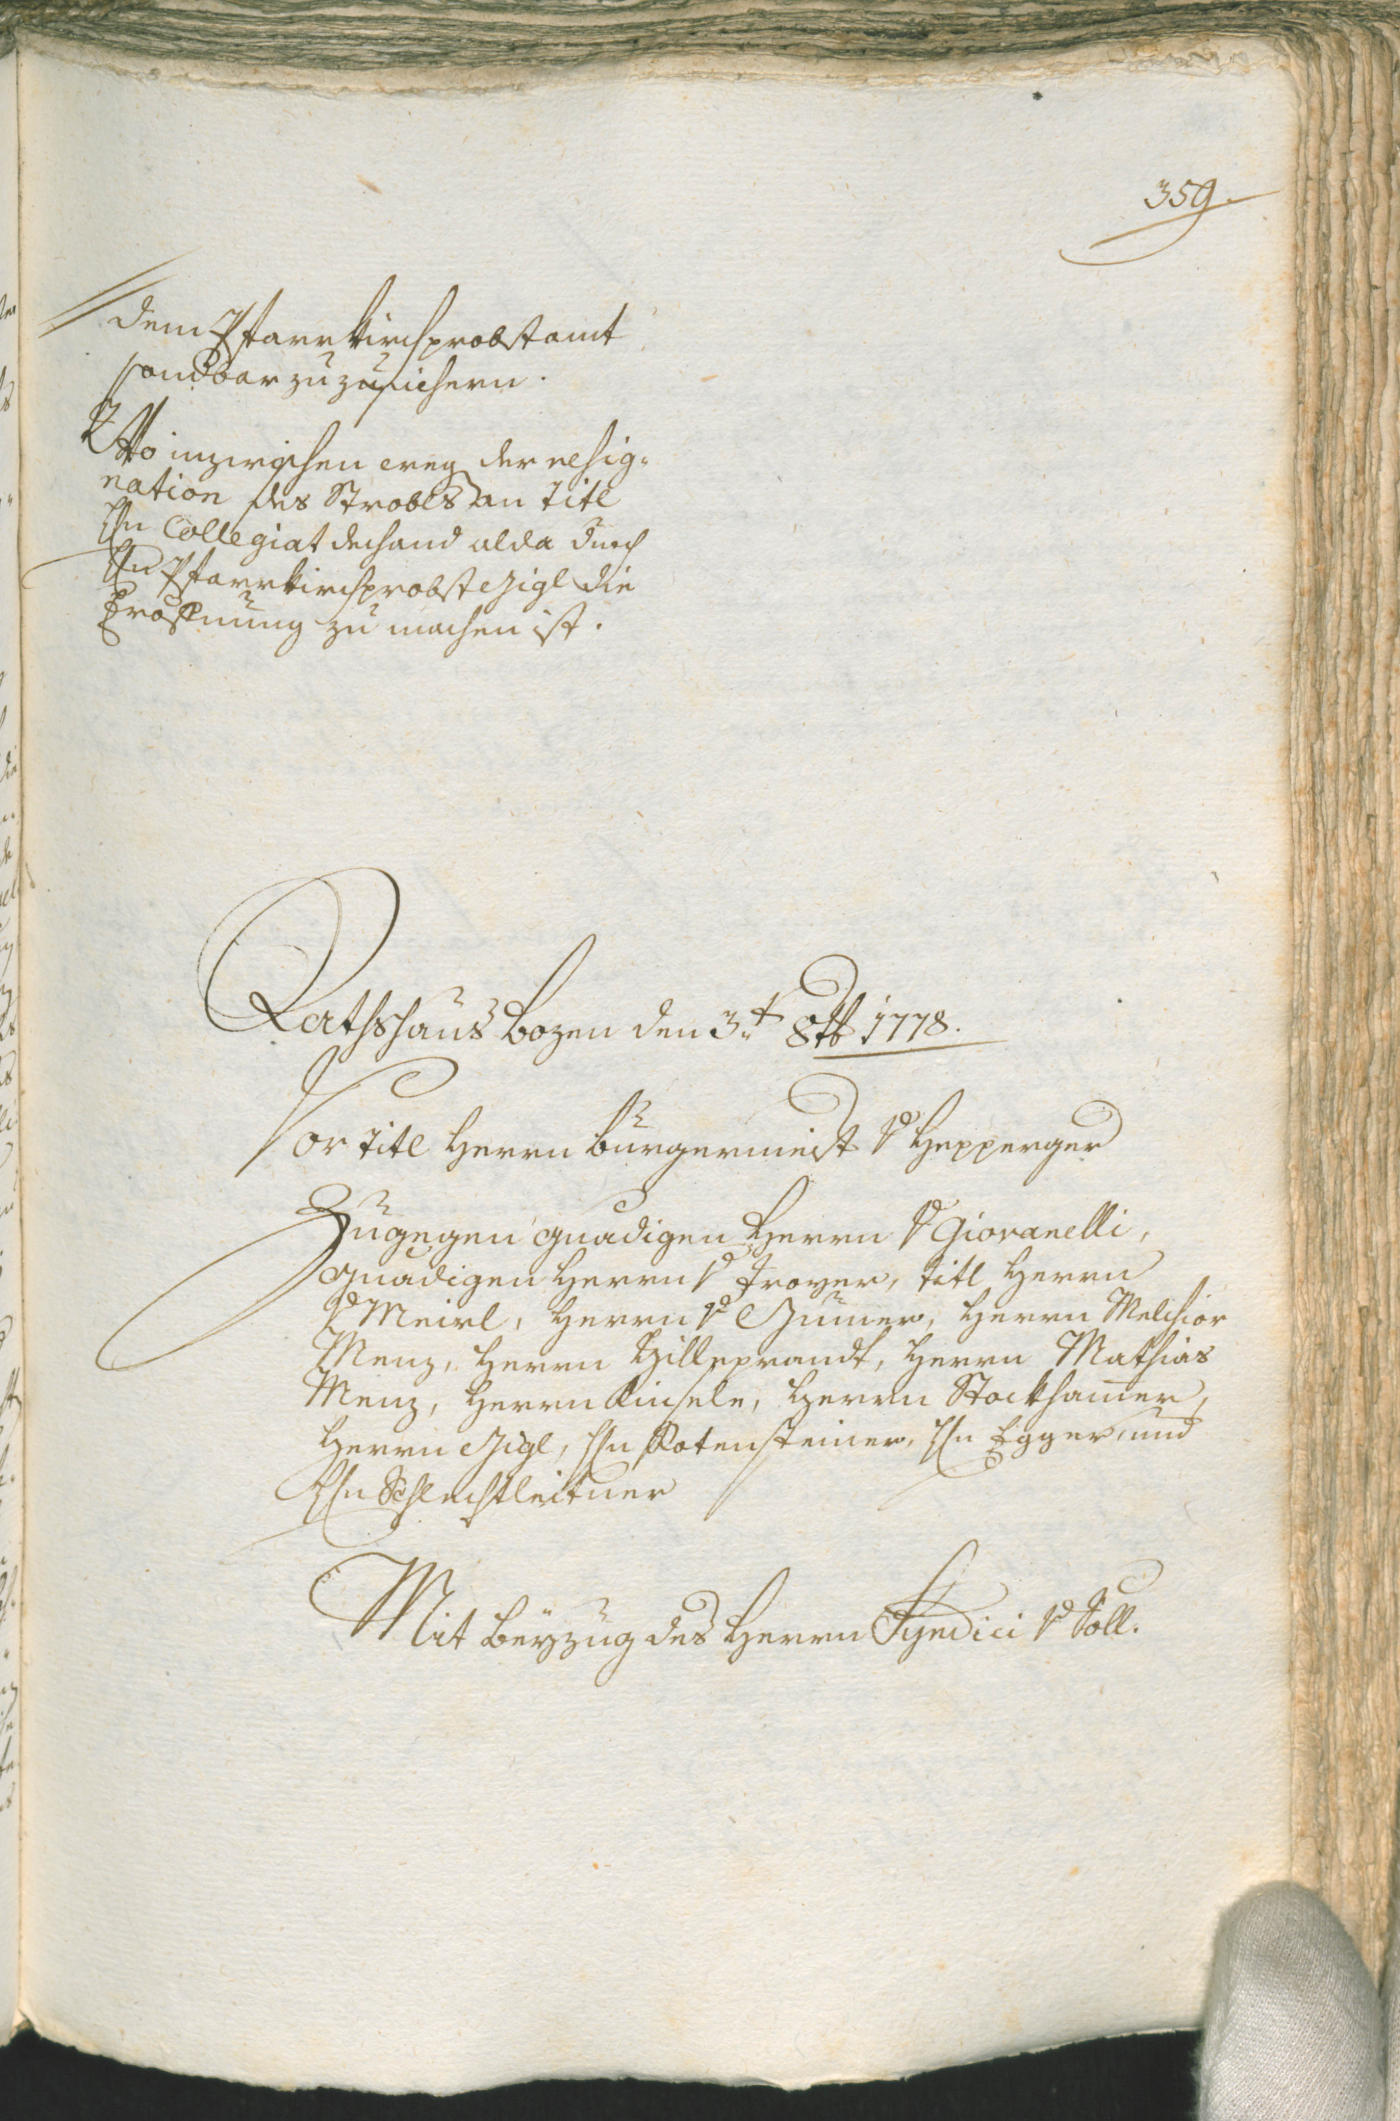 359.
dem Pfarrkirchprobstamt
sondbar zuzusichern.
Wo inzwischen ereg der resig-
nation des Strobls an Titl
Hn Collegiat dechand alda durch
Hn Pfarrkirchprobst Zigl die
Eröffnung zu machen ist.
Rathshaus Bozen den 3.t 8tb 1778.
Vor Titl Herrn Bürgermeist v Hepperger
Zugegen gnädigen Herrn v Giovanelli,
gnädigen Herrn v Troyer, Titl Herrn
v Meirl, Herrn v Gumer, Herrn Melchior
Menz, Herrn Hilleprandt, Herrn Mathias
Menz, Herrn Kinsele, Herrn Stockhamer,
Herrn Zigl, Hn Rotensteiner, Hn Egger, und
Hn Schlechtleitner
Mit Beyzug des Herrn Syndici v Söll.